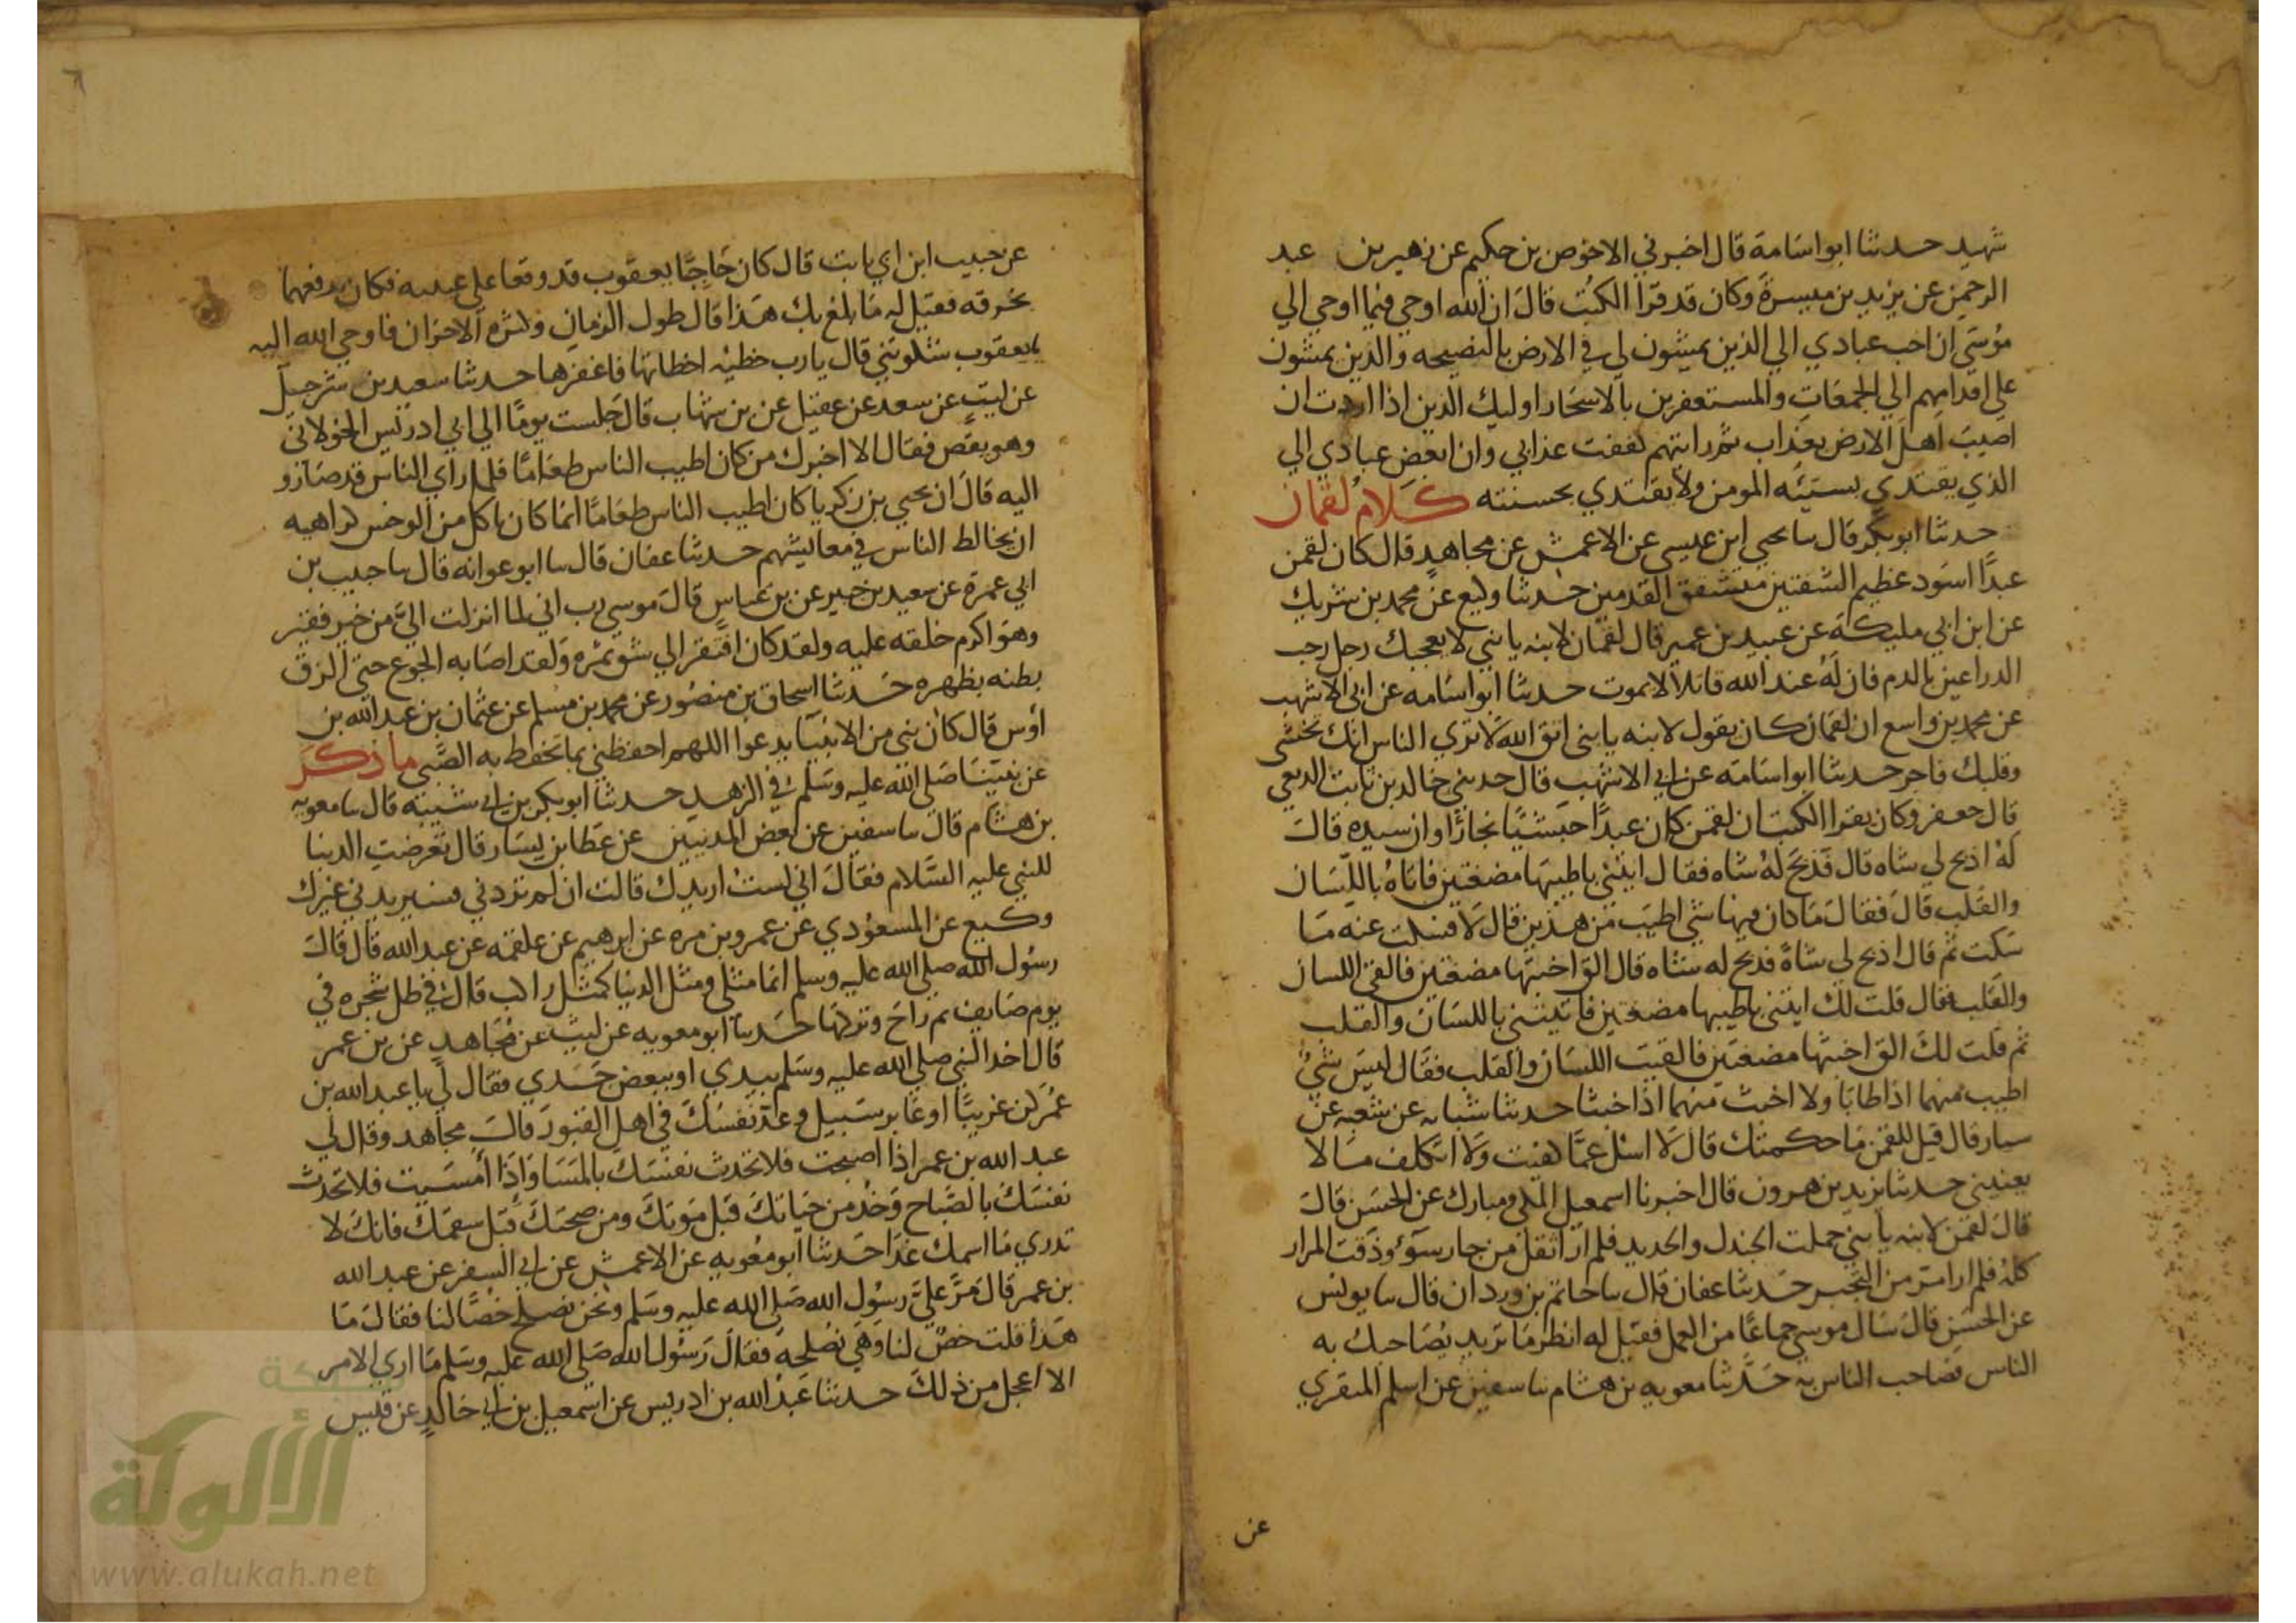 شهيد حدثنا ابو اسامة قال اخبرني الاخوص بن حكيم عن زهير بن عبد
الرحمن عن يزيد بن ميسرة وكان قد قرا الكتب قال ان الله اوحي فيما اوحي الي
موسي ان احب عبادي الي الذين يمشون لي في الارض بالنصيحه والذين يمشون
علي اقدامهم الي الجمعات والمستغفرين بالاسحار اوليك الذين اذا اردت ان
اصيب اهل الارض بعذاب ثم رايتهم كففت عذابي وان ابغض عبادي الي
الذي يقتدي بسيئه المومن ولا يقتدي بحسنته كلام لقمان
حدثنا ابو بكر قال سا يحيي ابن عيسي عن الاعمش عن مجاهد قال كان لقمن
عبدا اسود عظيم الشفتين مشقق القدمين حدثنا وكيع عن محمد بن شريك
عن ابن ابي مليكة عن عبيد بن عمير قال لقمان لابنه يا بني لا يعجبك رجل رحب
الدراعين بالدم فان له عند الله قاتلا لا يموت حدثنا ابو اسامه عن ابي الاشهب
عن محمد بن واسع ان لقمان كان يقول لابنه يا بني اتق الله لا تري الناس انك تخشي
وقلبك فاجر حدثنا ابو اسامه عن ابي الاشهب قال حدثني خالد بن ثابت الربعي
قال جعفر وكان يقرا الكتب ان لقمن كان عبدا حبشيا نجارا وان سيده قال
له اذبح لي شاه قال فذبح له شاه فقال ايتني باطيبها مضغتين فاتاه باللسان
والقلب قال فقال ما كان فيها شي اطيب من هذين قال لا فسكت عنه ما
سكت ثم قال اذبح لي شاة فذبح له شاه قال الق اخبثها مضغتين فالقي اللسان
والقلب فقال قلت لك ايتني باطيبها مضغتين فاتيتني باللسان والقلب
ثم قلت لك الق اخبثها مضغتين فالقيت اللسان والقلب فقال ليس شي
اطيب منهما اذا طابا ولا اخبث منهما اذا خبثا حدثنا شبابه عن شعبه عن
سيار قال قيل للقمن ما حكمتك قال لا اسل عما كفيت ولا اتكلف ما لا
يعنيني حدثنا يزيد بن هرون قال اخبرنا اسمعيل المكي ومبارك عن الحسن قال
قال لقمن لابنه يا بني حملت الجندل والحديد فلم ار اثقل من جار سوء وذقت المرار
كله فلم ار امر من التجبر حدثنا عفان قال سا حاتم بن وردان قال سا يونس
عن الحسن قال سال موسي جماعا من العمل فقيل له انظر ما تريد يصاحبك به
الناس فصاحب الناس به حدثنا معويه بن هشام سا سفين عن اسلم المنقري
عن
عن حبيب ابن ابي ثابت قال كان حاجبا يعقوب قد وقعا علي عينيه فكان يرفعهما
بخرقه فقيل له ما بلغ بك هذا قال طول الزمان وكثره الاحزان فاوحي الله اليه
يا يعقوب شكوتني قال يا رب خطيه اخطاتها فاغفرها حدثنا سعيد بن شرحبيل
عن ليث عن سعد عن عقيل عن بن شهاب قال جلست يوما الي ابي ادريس الخولاني
وهو يقص فقال الا اخبرك من كان اطيب الناس طعاما فلما راي الناس قد صارو
اليه قال ان يحيي بن زكريا كان اطيب الناس طعاما انما كان ياكل من الوحش كراهيه
ان يخالط الناس في معايشهم حدثنا عفان قال سا ابو عوانه قال سا حبيب بن
ابي عمرة عن سعيد بن جبير عن بن عباس قال موسي رب اني لما انزلت الي من خير فقير
وهو اكرم خلقه عليه ولقد كان افتقر الي شق تمره ولقد اصابه الجوع حتي الزق
بطنه بظهره حدثنا اسحاق بن منصور عن محمد بن مسلم عن عثمان بن عبد الله بن
اوس قال كان نبي من الانبيا يدعوا اللهم احفظني بما تحفظ به الصبي ما ذكر
عن نبينا صلي الله عليه وسلم في الزهد حدثنا ابو بكر بن ابي شيبه قال سا معويه
بن هشام قال سا سفين عن بعض المدنيين عن عطا بن يسار قال تعرضت الدنيا
للنبي عليه السلام فقال اني لست اريدك قالت ان لم تردني فسيريدني غيرك
وكيع عن المسعودي عن عمرو بن مره عن ابرهيم عن علقمه عن عبد الله قال قال
رسول الله صلي الله عليه وسلم انما مثلي ومثل الدنيا كمثل راكب قال في ظل شجره في
يوم صايف ثم راح وتركها حدثنا ابو معويه عن ليث عن مجاهد عن بن عمر
قال اخذ النبي صلي الله عليه وسلم بيدي او ببعض جسدي فقال لي يا عبد الله بن
عمر كن غريبا او عابر سبيل وعد نفسك في اهل القبور قال مجاهد وقال لي
عبد الله بن عمر اذا اصبحت فلا تحدث نفسك بالمسا واذا امسيت فلا تحدث
نفسك بالصباح وخذ من حياتك قبل موتك ومن صحتك قبل سقمك فانك لا
تدري ما اسمك غدا حدثنا ابو معويه عن الاعمش عن ابي السفر عن عبد الله
بن عمر قال مر علي رسول الله صلي الله عليه وسلم ونحن نصلح خصا لنا فقال ما
هذا قلت خص لنا وهي نصلحه فقال رسول الله صلي الله عليه وسلم ما اري الامر
الا اعجل من ذلك حدثنا عبد الله بن ادريس عن اسمعيل بن ابي خالد عن قيس
شبكة
الألوكة
www.alukah.net